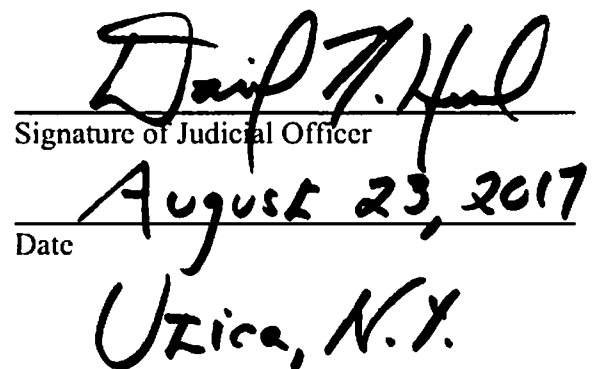 David N. Hurd
Signature of Judicial Officer
August 23, 2017
Date
Utica, N.Y.